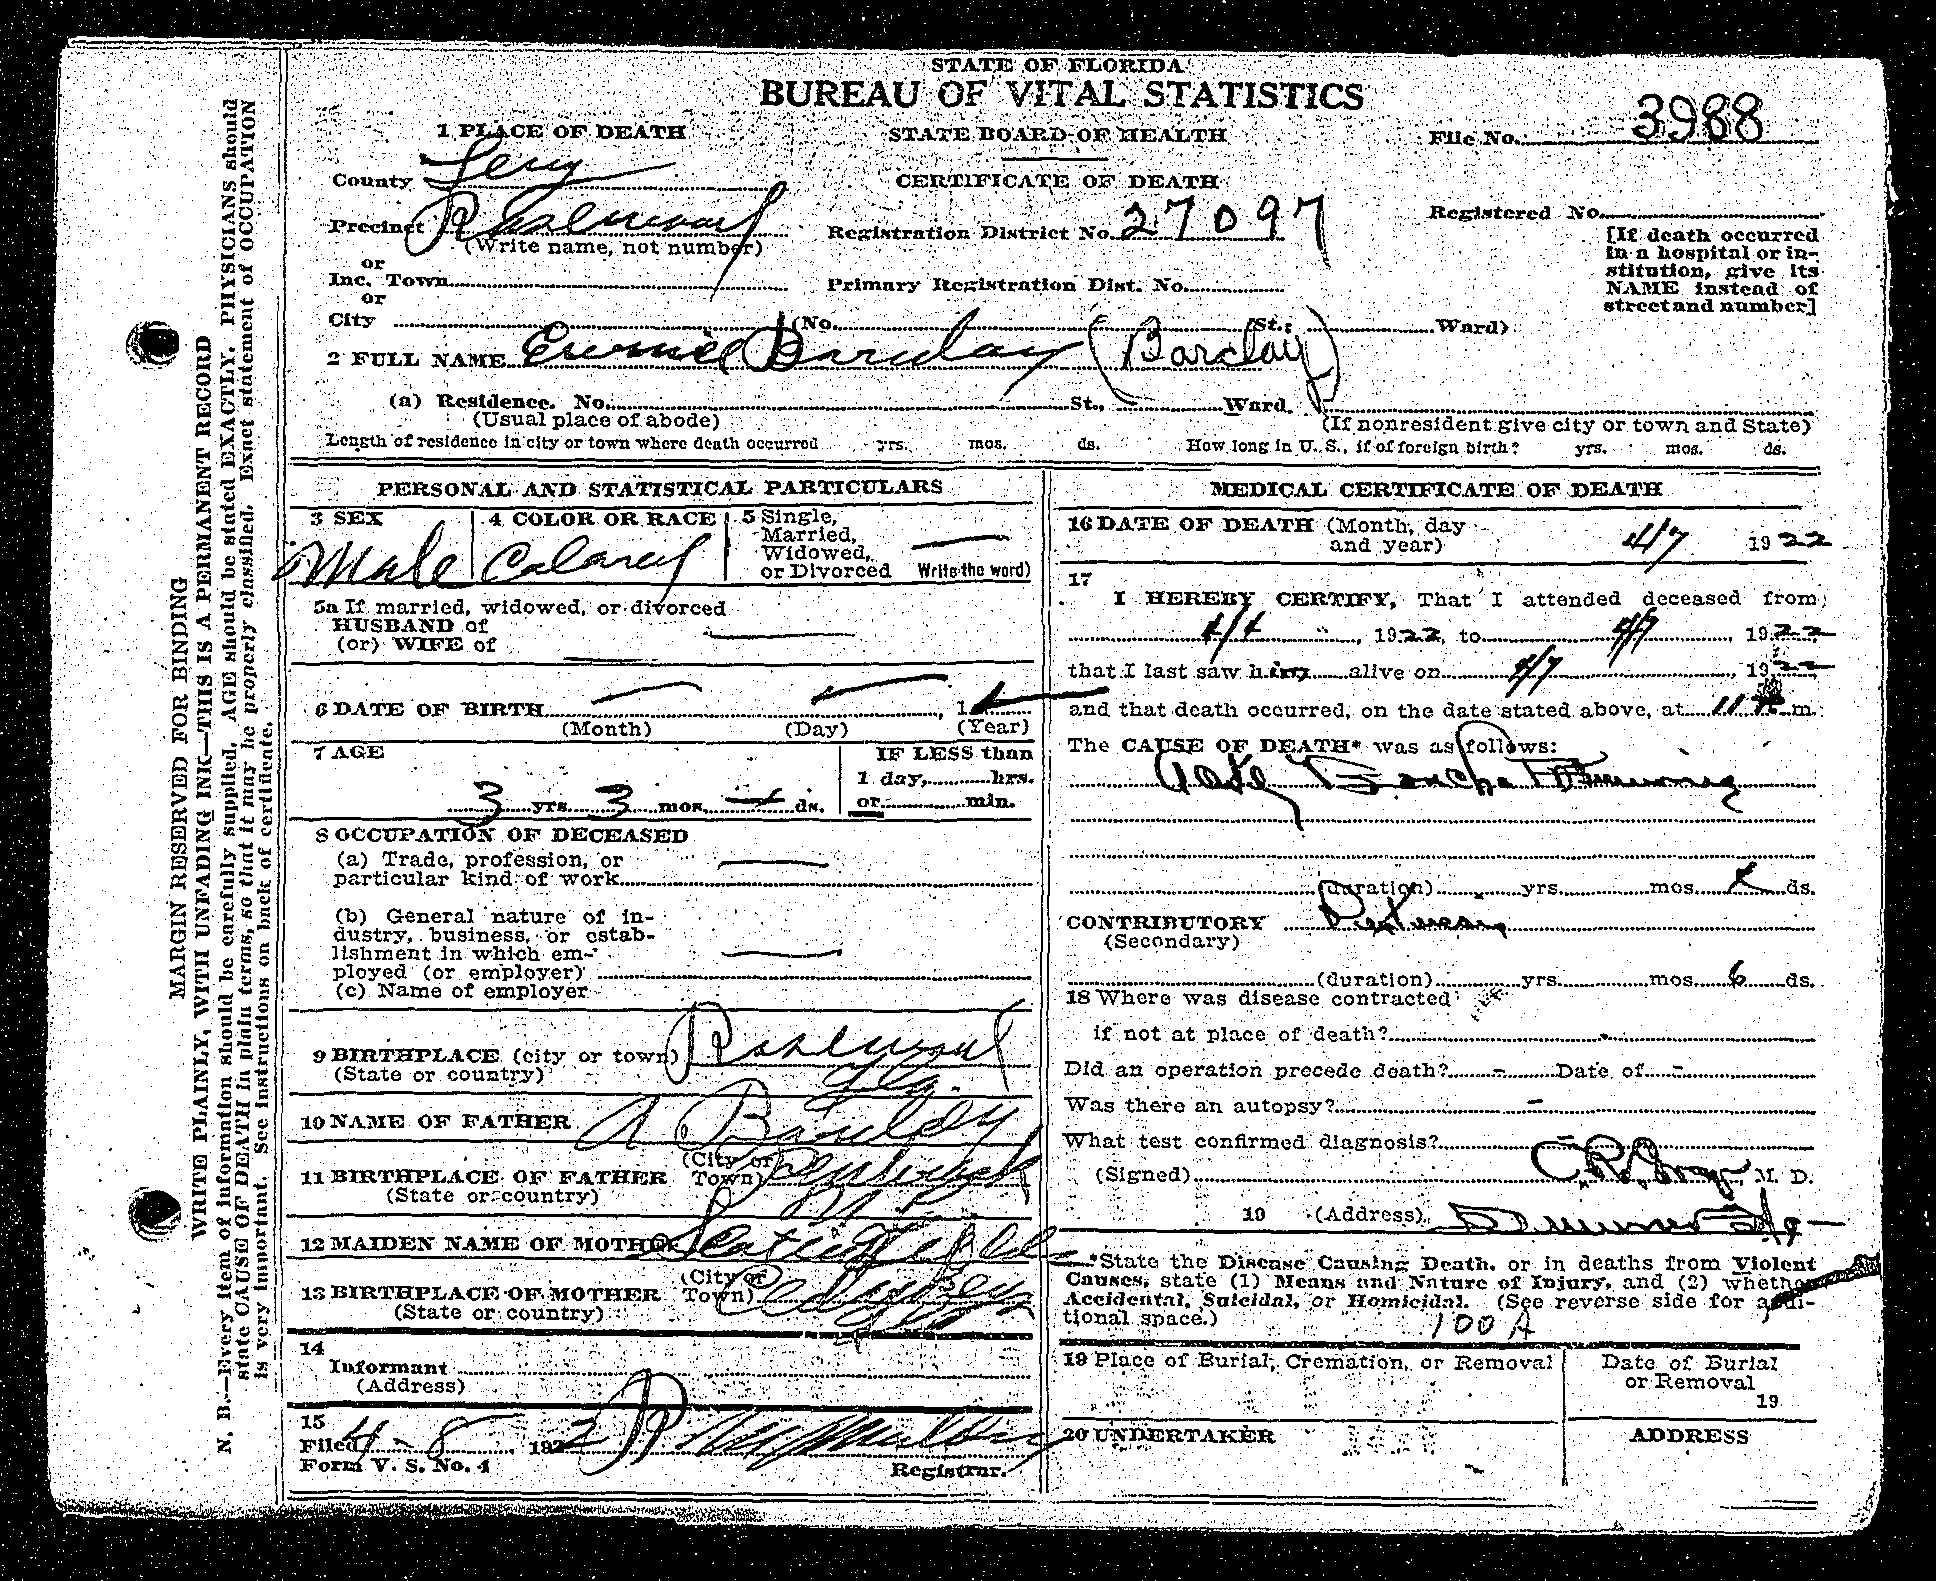 STATE OF FLORIDA
BUREAU OF VITAL STATISTICS
STATE BOARD OF HEALTH
CERTIFICATE OF DEATH
File No. 3988
1 PLACE OF DEATH
County Levy
Precinct
(Write name, not number)
or
Inc. Town
or
City (No. St.; Ward)
Registration District No. 27097
Primary Registration Dist. No.
Registered No.
[If death occurred
in a hospital or in-
stitution, give its
NAME instead of
street and number]
2 FULL NAME Barclay (Barclay)
(a) Residence. No. St., Ward.
(Usual place of abode)
(If nonresident give city or town and State)
Length of residence in city or town where death occurred yrs. mos. ds. How long in U. S., if of foreign birth? yrs. mos. ds.
PERSONAL AND STATISTICAL PARTICULARS
3 SEX
Male
4 COLOR OR RACE
Colored
5 Single,
Married,
Widowed,
or Divorced Write the word)
5a If married, widowed, or divorced
HUSBAND of
(or) WIFE of
6 DATE OF BIRTH , 1
(Month) (Day) (Year)
7 AGE
3 yrs. 3 mos. ds.
IF LESS than
1 day, hrs.
or min.
8 OCCUPATION OF DECEASED
(a) Trade, profession, or
particular kind of work
(b) General nature of in-
dustry, business, or estab-
lishment in which em-
ployed (or employer)
(c) Name of employer
9 BIRTHPLACE (city or town)
(State or country) Fla.
10 NAME OF FATHER A
11 BIRTHPLACE OF FATHER (City or Town)
(State or country)
12 MAIDEN NAME OF MOTHER
13 BIRTHPLACE OF MOTHER (City or Town) Cedar Key
(State or country)
14
Informant
(Address)
15
Filed 4-8, 1922
Registrar.
Form V. S. No. 4
MEDICAL CERTIFICATE OF DEATH
16 DATE OF DEATH (Month, day
and year) 4/7 1922
17
I HEREBY CERTIFY, That I attended deceased from
4/4, 1922, to 4/7, 1922
that I last saw him alive on 4/7, 1922
and that death occurred, on the date stated above, at 11 m.
The CAUSE OF DEATH* was as follows:
(duration) yrs. mos. ds.
CONTRIBUTORY
(Secondary)
(duration) yrs. mos. 6 ds.
18 Where was disease contracted
if not at place of death?
Did an operation precede death? - Date of -
Was there an autopsy? -
What test confirmed diagnosis? -
(Signed) M. D.
19 (Address)
*State the Disease Causing Death, or in deaths from Violent
Causes, state (1) Means and Nature of Injury, and (2) whether
Accidental, Suicidal, or Homicidal. (See reverse side for addi-
tional space.)
100A
19 Place of Burial, Cremation, or Removal
Date of Burial
or Removal
19
20 UNDERTAKER
ADDRESS
MARGIN RESERVED FOR BINDING
WRITE PLAINLY, WITH UNFADING INK—THIS IS A PERMANENT RECORD
N. B.—Every item of information should be carefully supplied. AGE should be stated EXACTLY. PHYSICIANS should
state CAUSE OF DEATH in plain terms, so that it may be properly classified. Exact statement of OCCUPATION
is very important. See instructions on back of certificate.